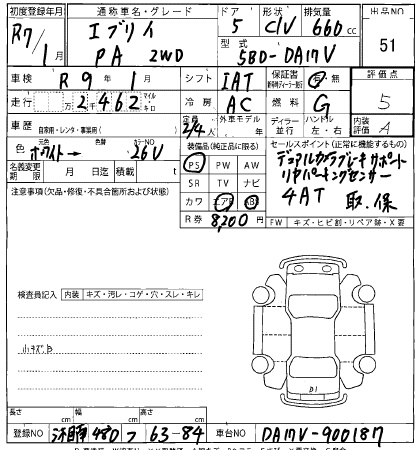 初度登録年月 通称車名・グレード ドア 形状 排気量 出品NO
R7/1月 エブリイ 5 C/V 660cc 51
PA 2WD 型式 5BD-DA17V
車検 R 9年 1月 シフト IAT 保証書 有・無 評価点
走行 万 2462 マイル・キロ 冷房 AC 燃料 G 5
車歴 自家用・レンタ・事業用( ) 定員 2/4人 外車モデル ディーラー・並行 ハンドル 左・右 内装評価 A
色 元色 ホワイト→ 色替 カラーNO 26V 装備品(純正品に限る) セールスポイント(正常に機能するもの)
名義変更期限 月 日迄 積載 t PS PW AW デュアルカメラブレーキサポート
注意事項(欠品・修復・不具合箇所および状態) SR TV ナビ リヤパーキングセンサー
カワ エアB ABS 4AT 取.保
R券 8,200円 FW キズ・ヒビ割・リペア跡・X要
検査員記入 内装 キズ・汚レ・コゲ・穴・スレ・キレ
小キズB
D1
長さ cm 幅 cm 高さ cm
登録NO 480 つ 63-84 車台NO DA17V-900187